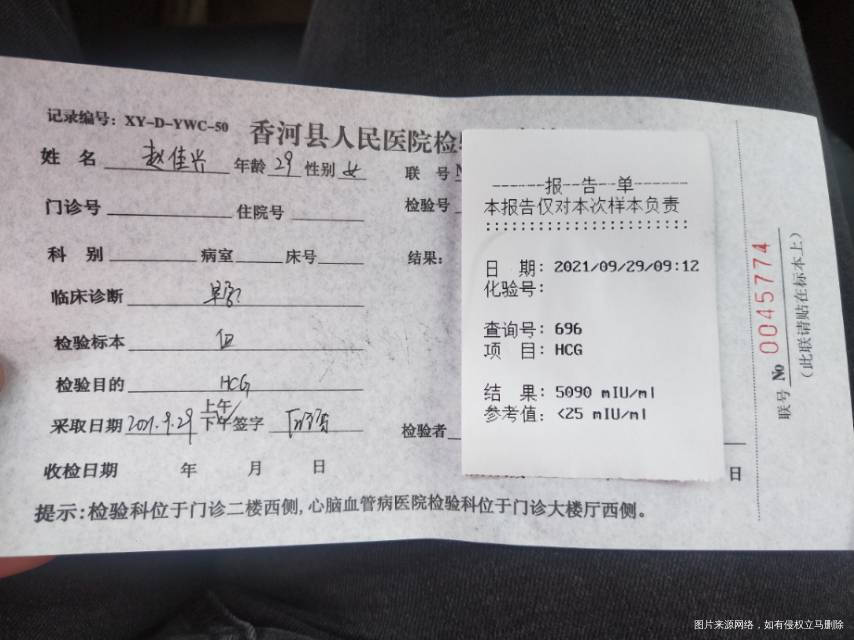 记录编号：XY-D-YWC-50
香河县人民医院检
姓 名 赵佳兴 年龄 29 性别 女
联 号
门诊号 住院号
检验号
科 别 病室 床号
结果：
临床诊断 早孕?
检验标本 血
检验目的 HCG
采取日期 2021.9.29 上午/下午 签字
检验者
收检日期 年 月 日
日
提示：检验科位于门诊二楼西侧，心脑血管病医院检验科位于门诊大楼厅西侧。
------报--告--单------
本报告仅对本次样本负责
::::::::::::::::::::::
日 期：2021/09/29/09:12
化验号：
查询号：696
项 目：HCG
结 果：5090 mIU/ml
参考值：<25 mIU/ml
联号 № 0045774
（此联请贴在标本上）
图片来源网络，如有侵权立马删除